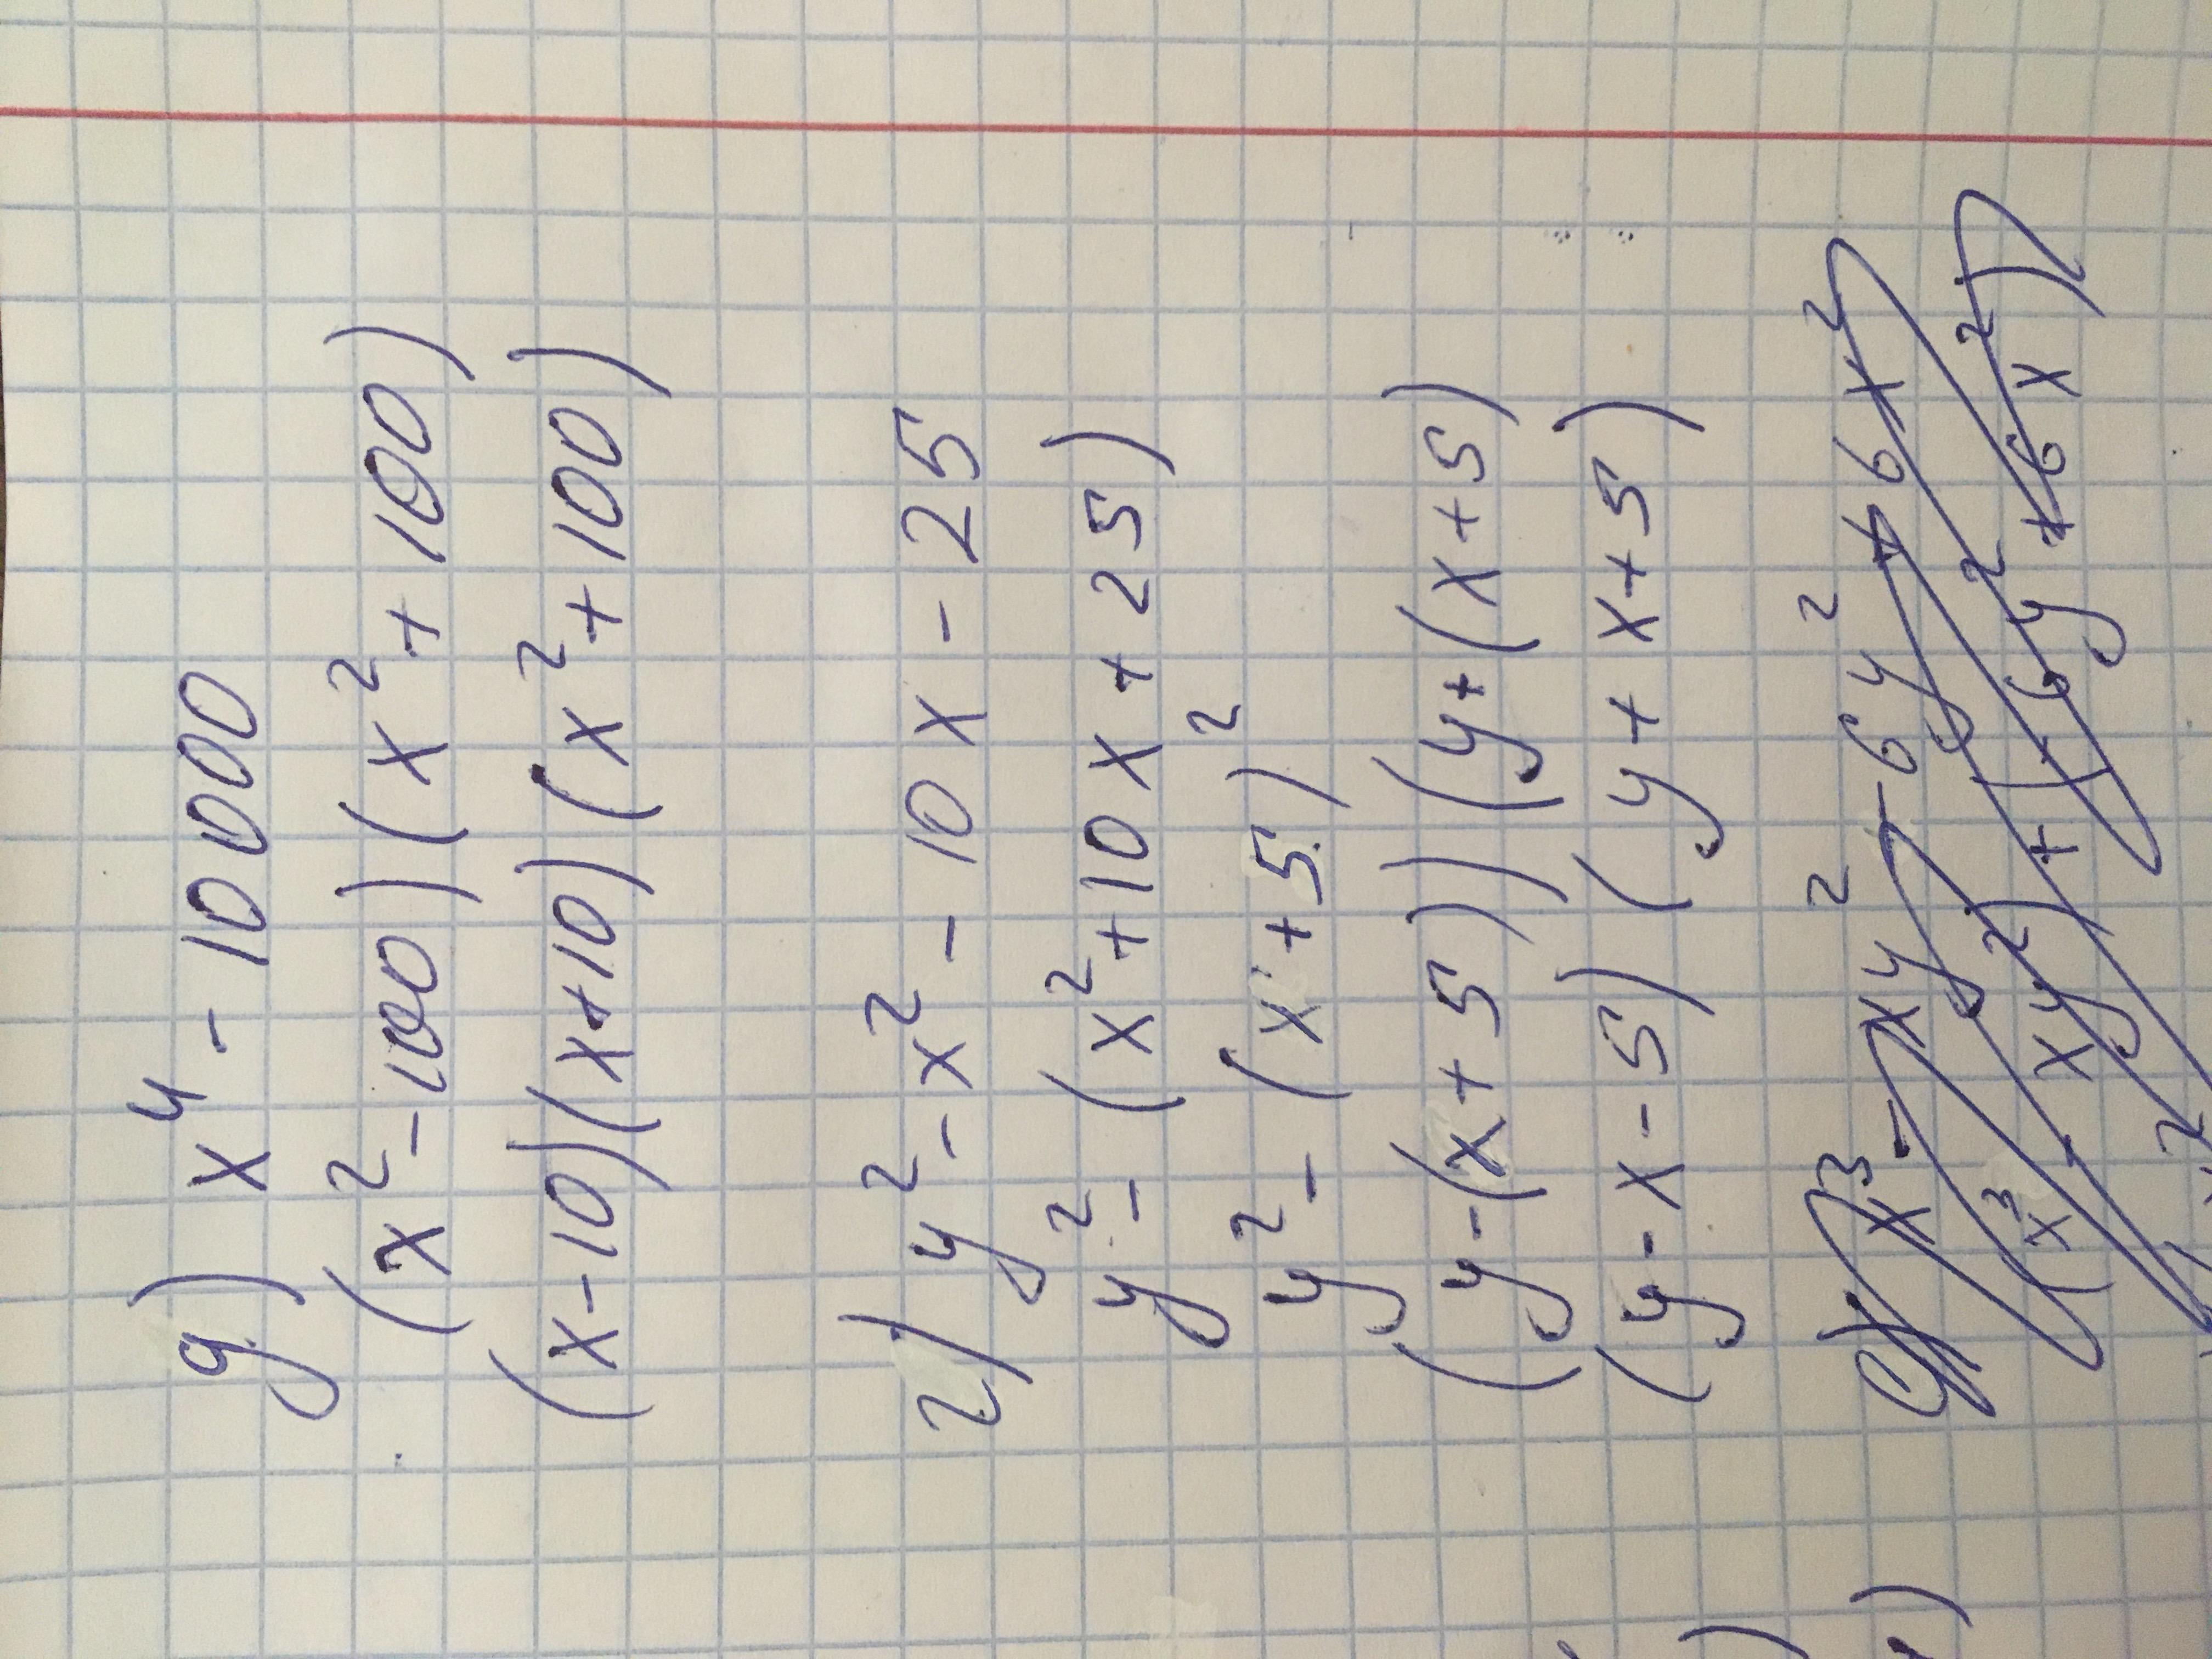 g) x⁴ - 10 000
(x² - 100)(x² + 100)
(x - 10)(x + 10)(x² + 100)
г) y² - x² - 10x - 25
y² - (x² + 10x + 25)
y² - (x + 5)²
(y - (x + 5))(y + (x + 5)
(y - x - 5)(y + x + 5)
x³ - xy² - 6y² + 6x²
(x³ - xy²) + (-6y² + 6x²)